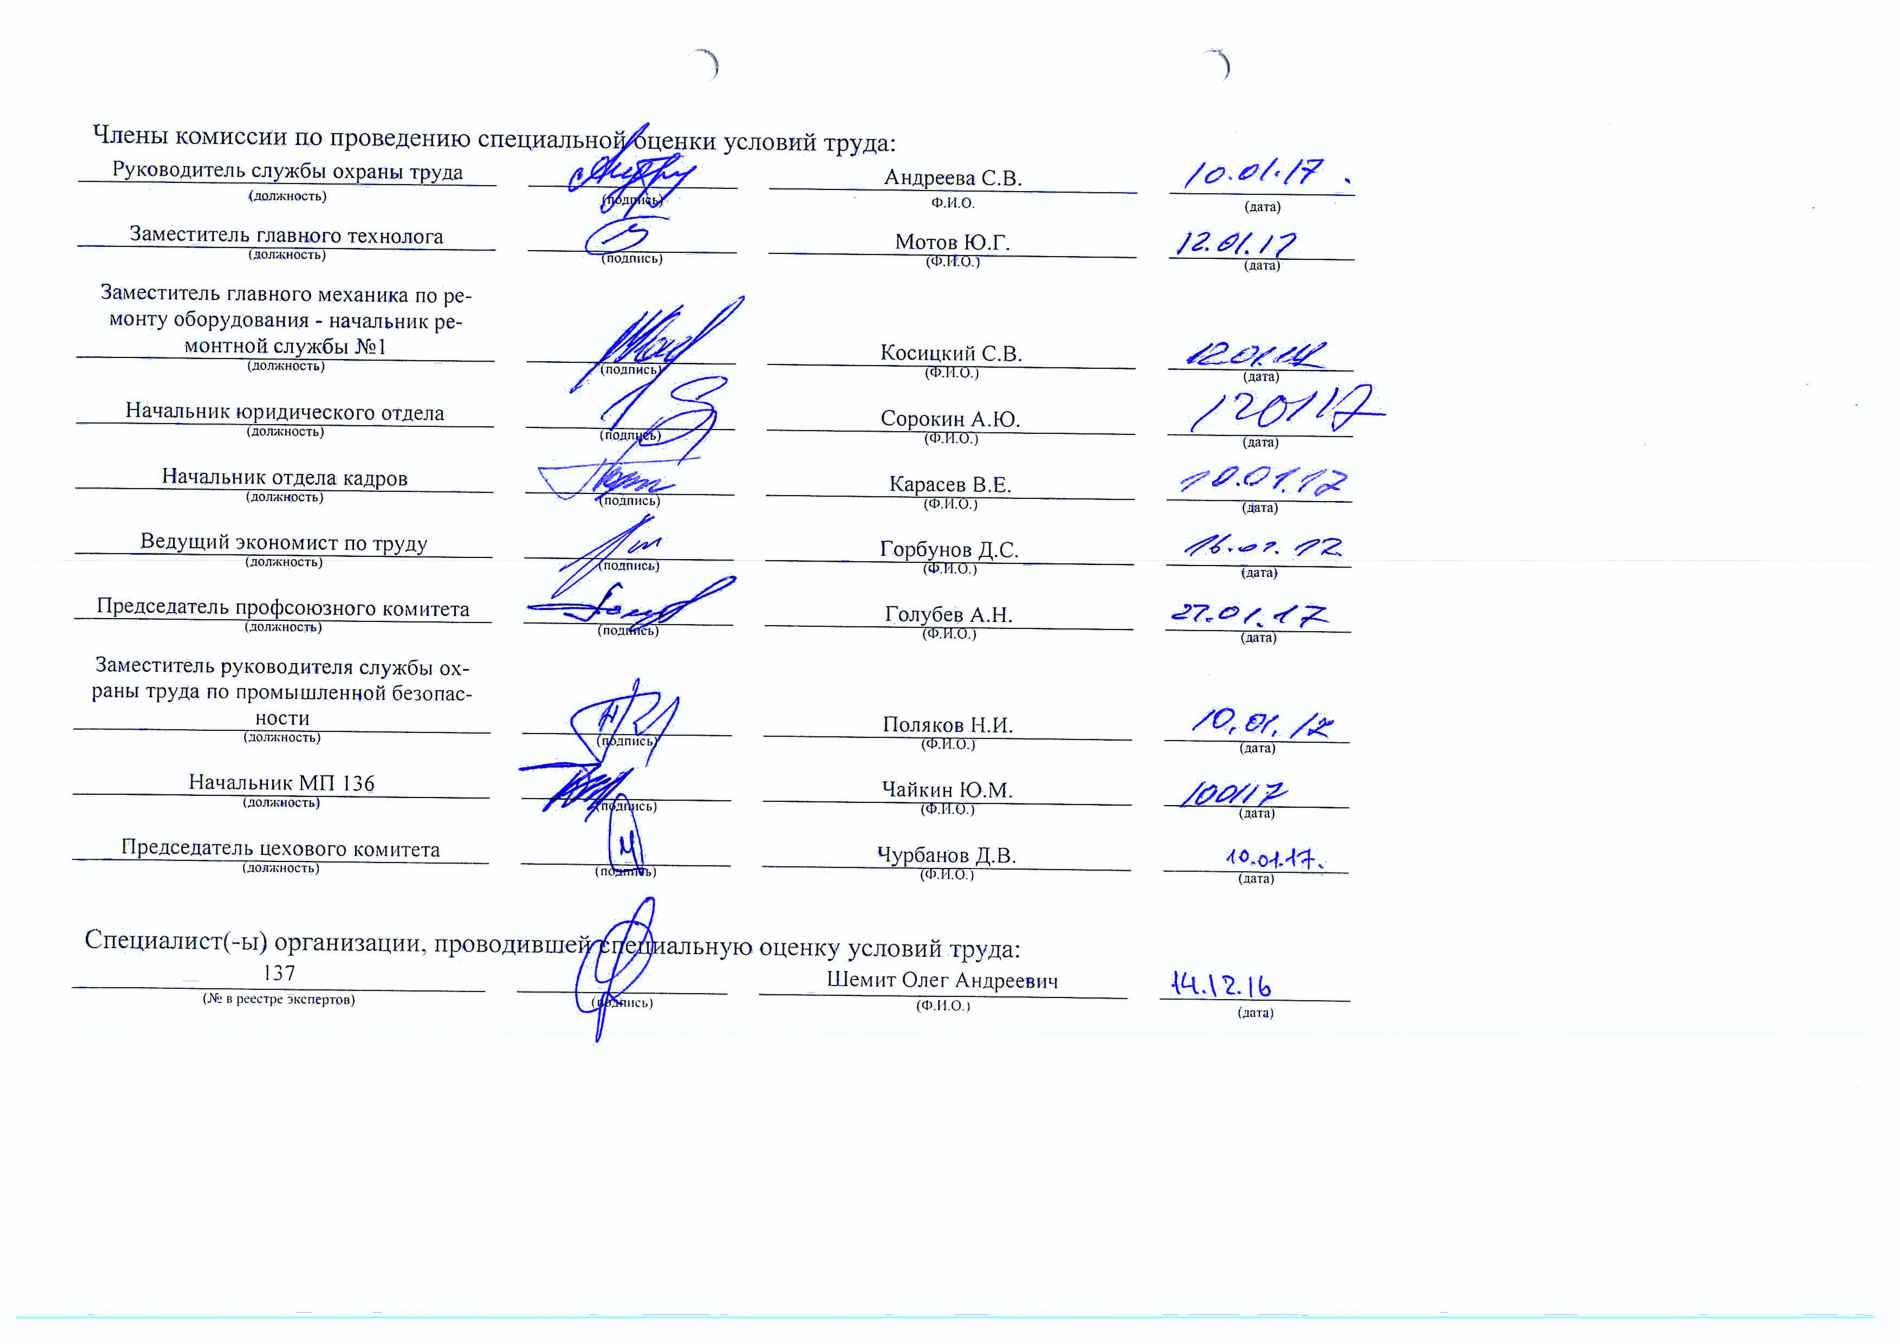 Члены комиссии по проведению специальной оценки условий труда:
Руководитель службы охраны труда Андреева С.В. 10.01.17.
(должность) (подпись) Ф.И.О. (дата)
Заместитель главного технолога Мотов Ю.Г. 12.01.17
(должность) (подпись) (Ф.И.О.) (дата)
Заместитель главного механика по ре-
монту оборудования - начальник ре-
монтной службы №1 Косицкий С.В.
(должность) (подпись) (Ф.И.О.) (дата)
Начальник юридического отдела Сорокин А.Ю. 120117
(должность) (подпись) (Ф.И.О.) (дата)
Начальник отдела кадров Карасев В.Е. 10.01.17
(должность) (подпись) (Ф.И.О.) (дата)
Ведущий экономист по труду Горбунов Д.С. 16.01.17
(должность) (подпись) (Ф.И.О.) (дата)
Председатель профсоюзного комитета Голубев А.Н. 27.01.17
(должность) (подпись) (Ф.И.О.) (дата)
Заместитель руководителя службы ох-
раны труда по промышленной безопас-
ности Поляков Н.И. 10.01.17
(должность) (подпись) (Ф.И.О.) (дата)
Начальник МП 136 Чайкин Ю.М. 100117
(должность) (подпись) (Ф.И.О.) (дата)
Председатель цехового комитета Чурбанов Д.В. 10.01.17.
(должность) (подпись) (Ф.И.О.) (дата)
Специалист(-ы) организации, проводившей специальную оценку условий труда:
137 Шемит Олег Андреевич 14.12.16
(№ в реестре экспертов) (подпись) (Ф.И.О.) (дата)